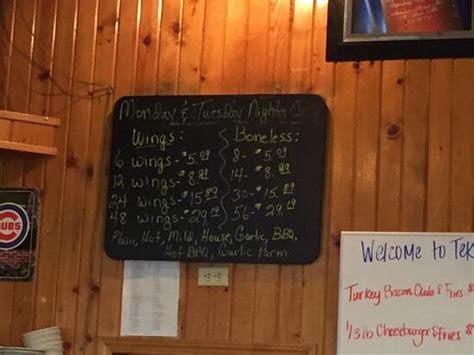 Monday & Tuesday Nights Only
Wings:
6 wings- $5.09
12 wings- $8.99
24 wings- $15.89
48 wings- $29.19
Boneless:
8- $5.09
14- 8.09
28- $15.89
56- $29.19
Plain, Hot, Mild, House, Garlic, BBQ,
Hot BBQ, Garlic Parm
CUBS
Welcome to Tek
Turkey Bacon Club & Fries $
1/3 lb Cheeseburger & Fries $